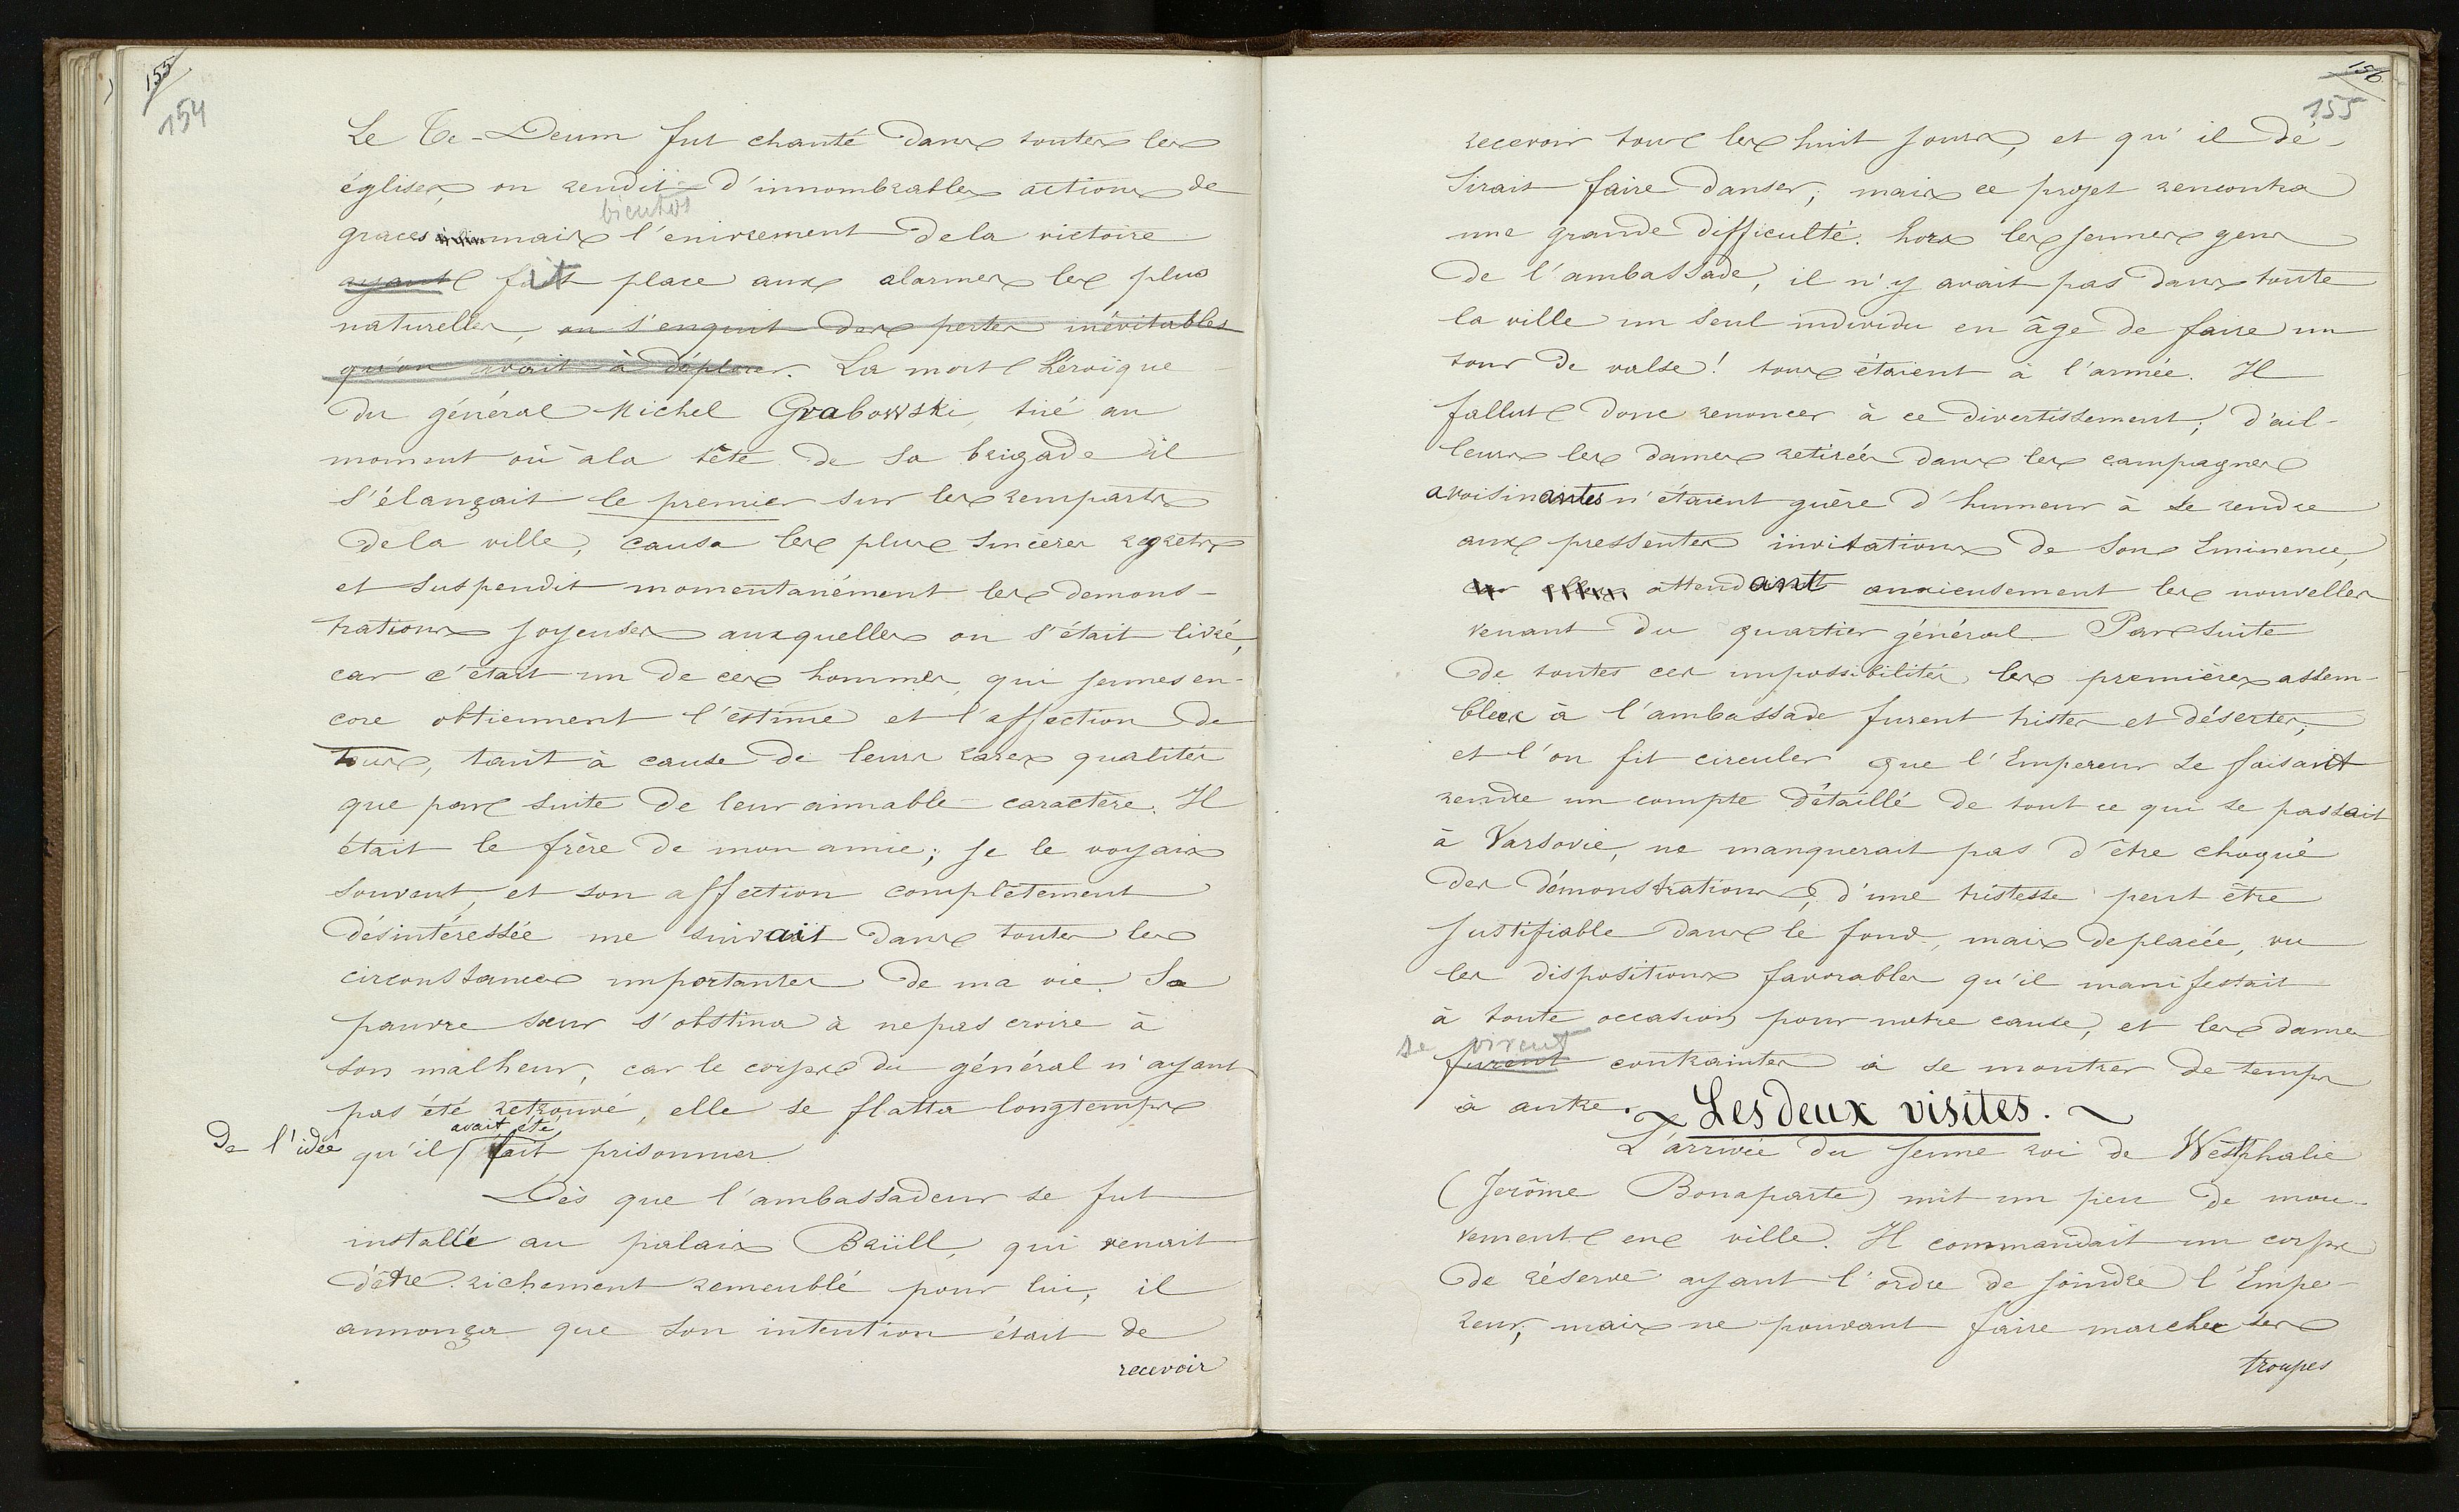 155
154
Le Te-Deum fut chanté dans toutes les
églises, on rendit d'innombrables actions de
bientôt
graces mais l'enivrement de la victoire
ayant fait place aux alarmes les plus
naturelles, on s'enquit des pertes inévitables
qu'on avait à déplorer. La mort héroïque
du général Michel Grabowski, tué au
moment où à la tête de sa brigade il
s'élançait le premier sur les remparts
de la ville, causa les plus sincères regrets
et suspendit momentanément les demons-
trations joyeuses auxquelles on s'était livré,
car c'était un de ces hommes, qui jeunes en-
core obtiennent l'estime et l'affection de
tous, tant à cause de leurs rares qualités
que par suite de leur aimable caractère. Il
était le frère de mon amie; je le voyais
souvent, et son affection complètement
désintéressée me suivait dans toutes les
circonstances importantes de ma vie. Sa
pauvre sœur s'obstina à ne pas croire à
son malheur, car le corps du général n'ayant
pas été retrouvé, elle se flatta longtemps
avait été
De l'idée qu'il fait prisonnier.
Dès que l'ambassadeur se fut
installé au palais Brüll, qui venait
d'être richement remeublé pour lui, il
annonça que son intention était de
recevoir
156
155
recevoir tous les huit jours, et qu'il dé-
sirait faire danser; mais ce projet rencontra
une grande difficulté: hors les jeunes gens
de l'ambassade, il n'y avait pas dans toute
la ville un seul individu en âge de faire un
tour de valse! tous étaient à l'armée. Il
fallut donc renoncer à ce divertissement; d'ail-
leurs les dames retirées dans les campagnes
avoisinantes n'étaient guère d'humeur à se rendre
aux pressentes invitations de Son Eminence,
car elles attendant anxieusement les nouvelles
venant du quartier général. Par suite
de toutes ces impossibilités les premières assem-
blées à l'ambassade furent tristes et désertes;
et l'on fit circuler que l'Empereur se faisait
rendre un compte détaillé de tout ce qui se passait
à Varsovie, ne manquerait pas d'être choqué
des démonstrations, d'une tristesse peut être
justifiable dans le fond, mais deplacée, vu
les dispositions favorables qu'il manifestait
à toute occasion pour notre cause, et les dames
se virent
furent contraintes à se montrer de temps
à autre.
Les deux visites.
L'arrivée du jeune roi de Westphalie
(Jerôme Bonaparte) mit un peu de mou-
vement en ville. Il commandait un corps
de réserve ayant l'ordre de joindre l'Empe-
reur, mais ne pouvant faire marcher ses
troupes